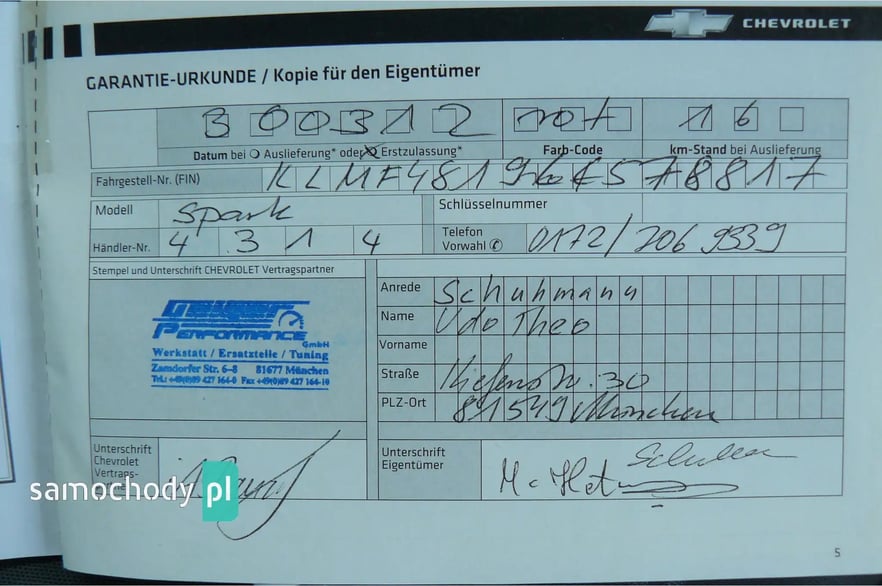 CHEVROLET
GARANTIE-URKUNDE / Kopie für den Eigentümer
300312 rot 16
Datum bei Auslieferung* oder Erstzulassung* Farb-Code km-Stand bei Auslieferung
Fahrgestell-Nr. (FIN)
Modell Spark Schlüsselnummer
Händler-Nr. 4 3 1 4 Telefon Vorwahl 0172/206 9339
Stempel und Unterschrift CHEVROLET Vertragspartner
Anrede Schuhmann
Name Udo Theo
Vorname
Straße 30
PLZ-Ort 81549 München
PERFORMANCE
GmbH
Werkstatt / Ersatzteile / Tuning
Zamdorfer Str. 6-8 81677 München
Tel.: +49(0)89 427 164-0 Fax +49(0)89 427 164-10
Unterschrift
Chevrolet
Vertrags-
Unterschrift
Eigentümer
samochody pl
5